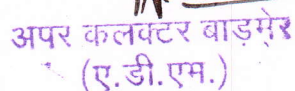 अपर कलक्टर बाड़मेर
(ए.डी.एम.)